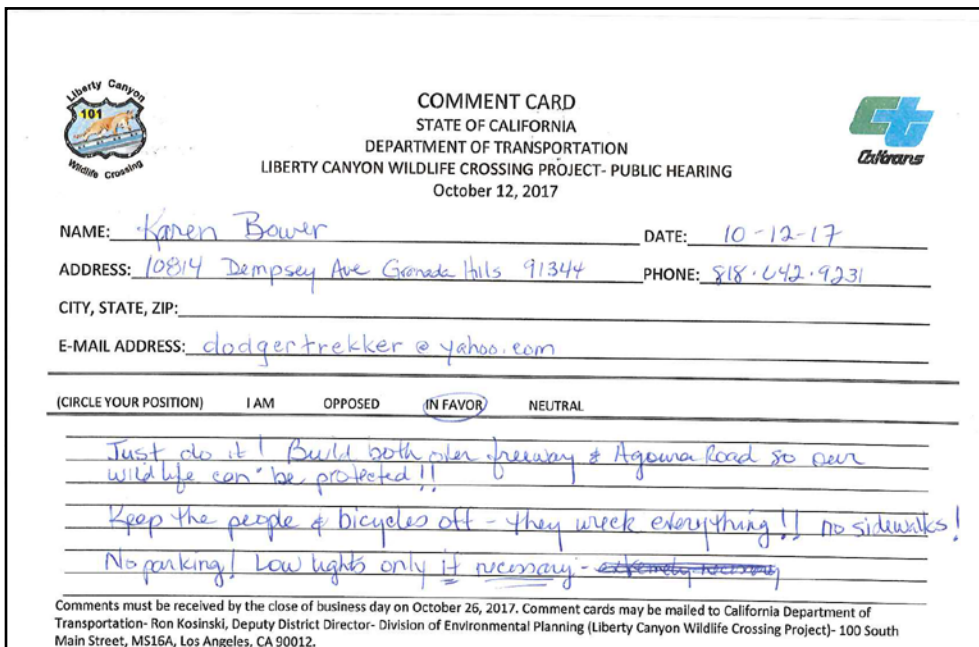 Liberty Canyon
101
Wildlife Crossing
COMMENT CARD
STATE OF CALIFORNIA
DEPARTMENT OF TRANSPORTATION
LIBERTY CANYON WILDLIFE CROSSING PROJECT- PUBLIC HEARING
October 12, 2017
Caltrans
NAME: Karen Bower DATE: 10-12-17
ADDRESS: 10814 Dempsey Ave Granada Hills 91344 PHONE: 818.642.9231
CITY, STATE, ZIP:
E-MAIL ADDRESS: dodgertrekker @ yahoo.com
(CIRCLE YOUR POSITION) I AM OPPOSED IN FAVOR NEUTRAL
Just do it! Build both over freeway & Agoura Road so our
wildlife can be protected!!
Keep the people & bicycles off - they wreck everything!! no sidewalks!
No parking! Low lights only if necessary - extremely necessary
Comments must be received by the close of business day on October 26, 2017. Comment cards may be mailed to California Department of
Transportation- Ron Kosinski, Deputy District Director- Division of Environmental Planning (Liberty Canyon Wildlife Crossing Project)- 100 South
Main Street, MS16A, Los Angeles, CA 90012.